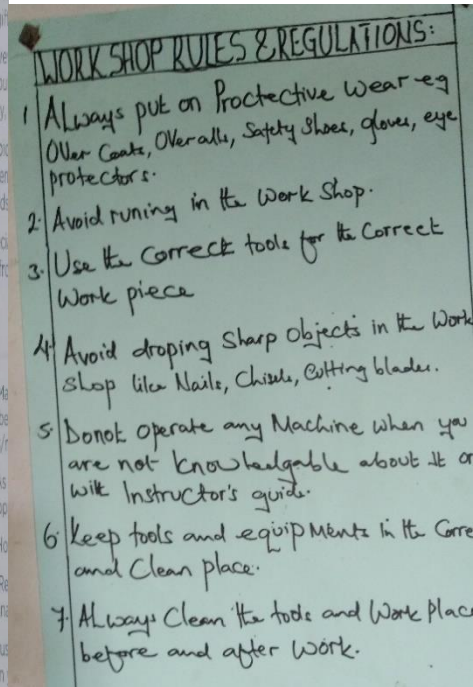 WORKSHOP RULES & REGULATIONS:
1 ALways put on Proctective Wear eg
Over Coats, Overalls, Safety Shoes, gloves, eye
protectors.
2. Avoid runing in the Work Shop.
3. Use the Correct tools for the Correct
Work piece
4. Avoid droping Sharp Objects in the Work
shop like Nails, Chisels, Cutting blades.
5. Donot Operate any Machine when you
are not knowledgable about it or
with Instructor's guide.
6. Keep tools and equipMents in the Corre
and Clean place.
7. ALways Clean the tools and Work Plac
before and after Work.